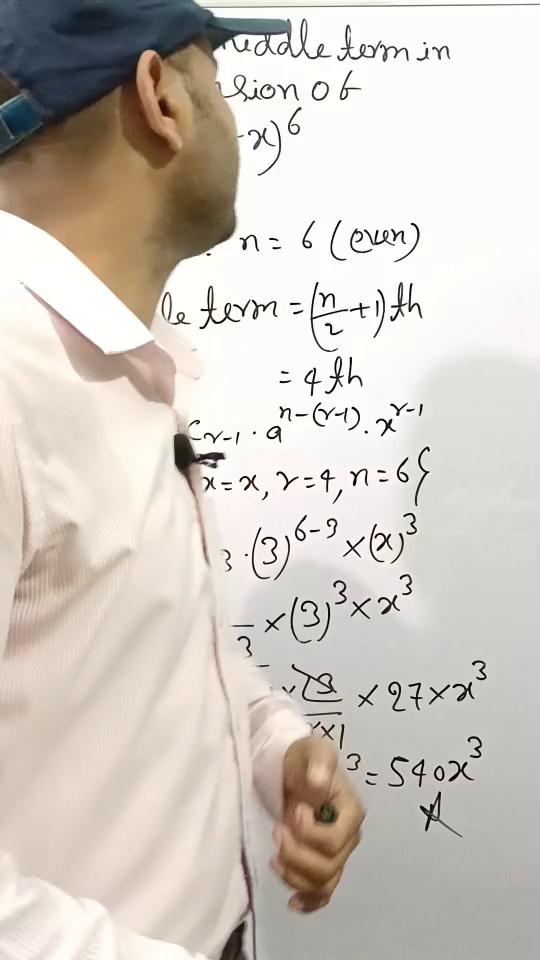 middle term in
sion of
x)⁶
n = 6 (even)
le term = (n/2 + 1)th
= 4th
r-1 · a^(n-(r-1)) · x^(r-1)
x = x, r = 4, n = 6}
3 · (3)^(6-3) × (x)³
3 × (3)³ × x³
× 27 × x³
×1
³ = 540x³